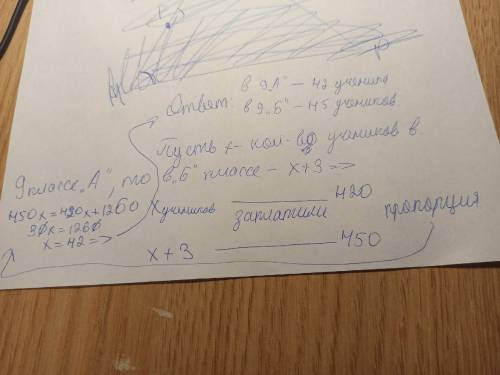 Ответ: в 9„А" – 42 ученика
в 9„Б" – 45 учеников
Пусть x – кол-во учеников в
9 классе „А", то в „Б" классе – x+3 =>
x учеников заплатили 420
x+3 450
пропорция
450x=420x+1260
30x=1260
x=42 =>